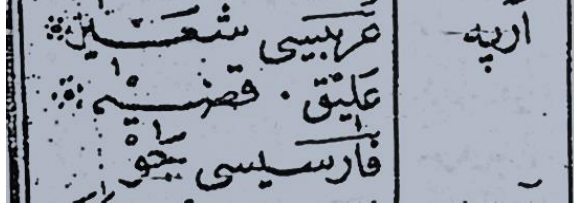 آرپه
عربیسی شعیر
علیق . قضیم
فارسیسی جو